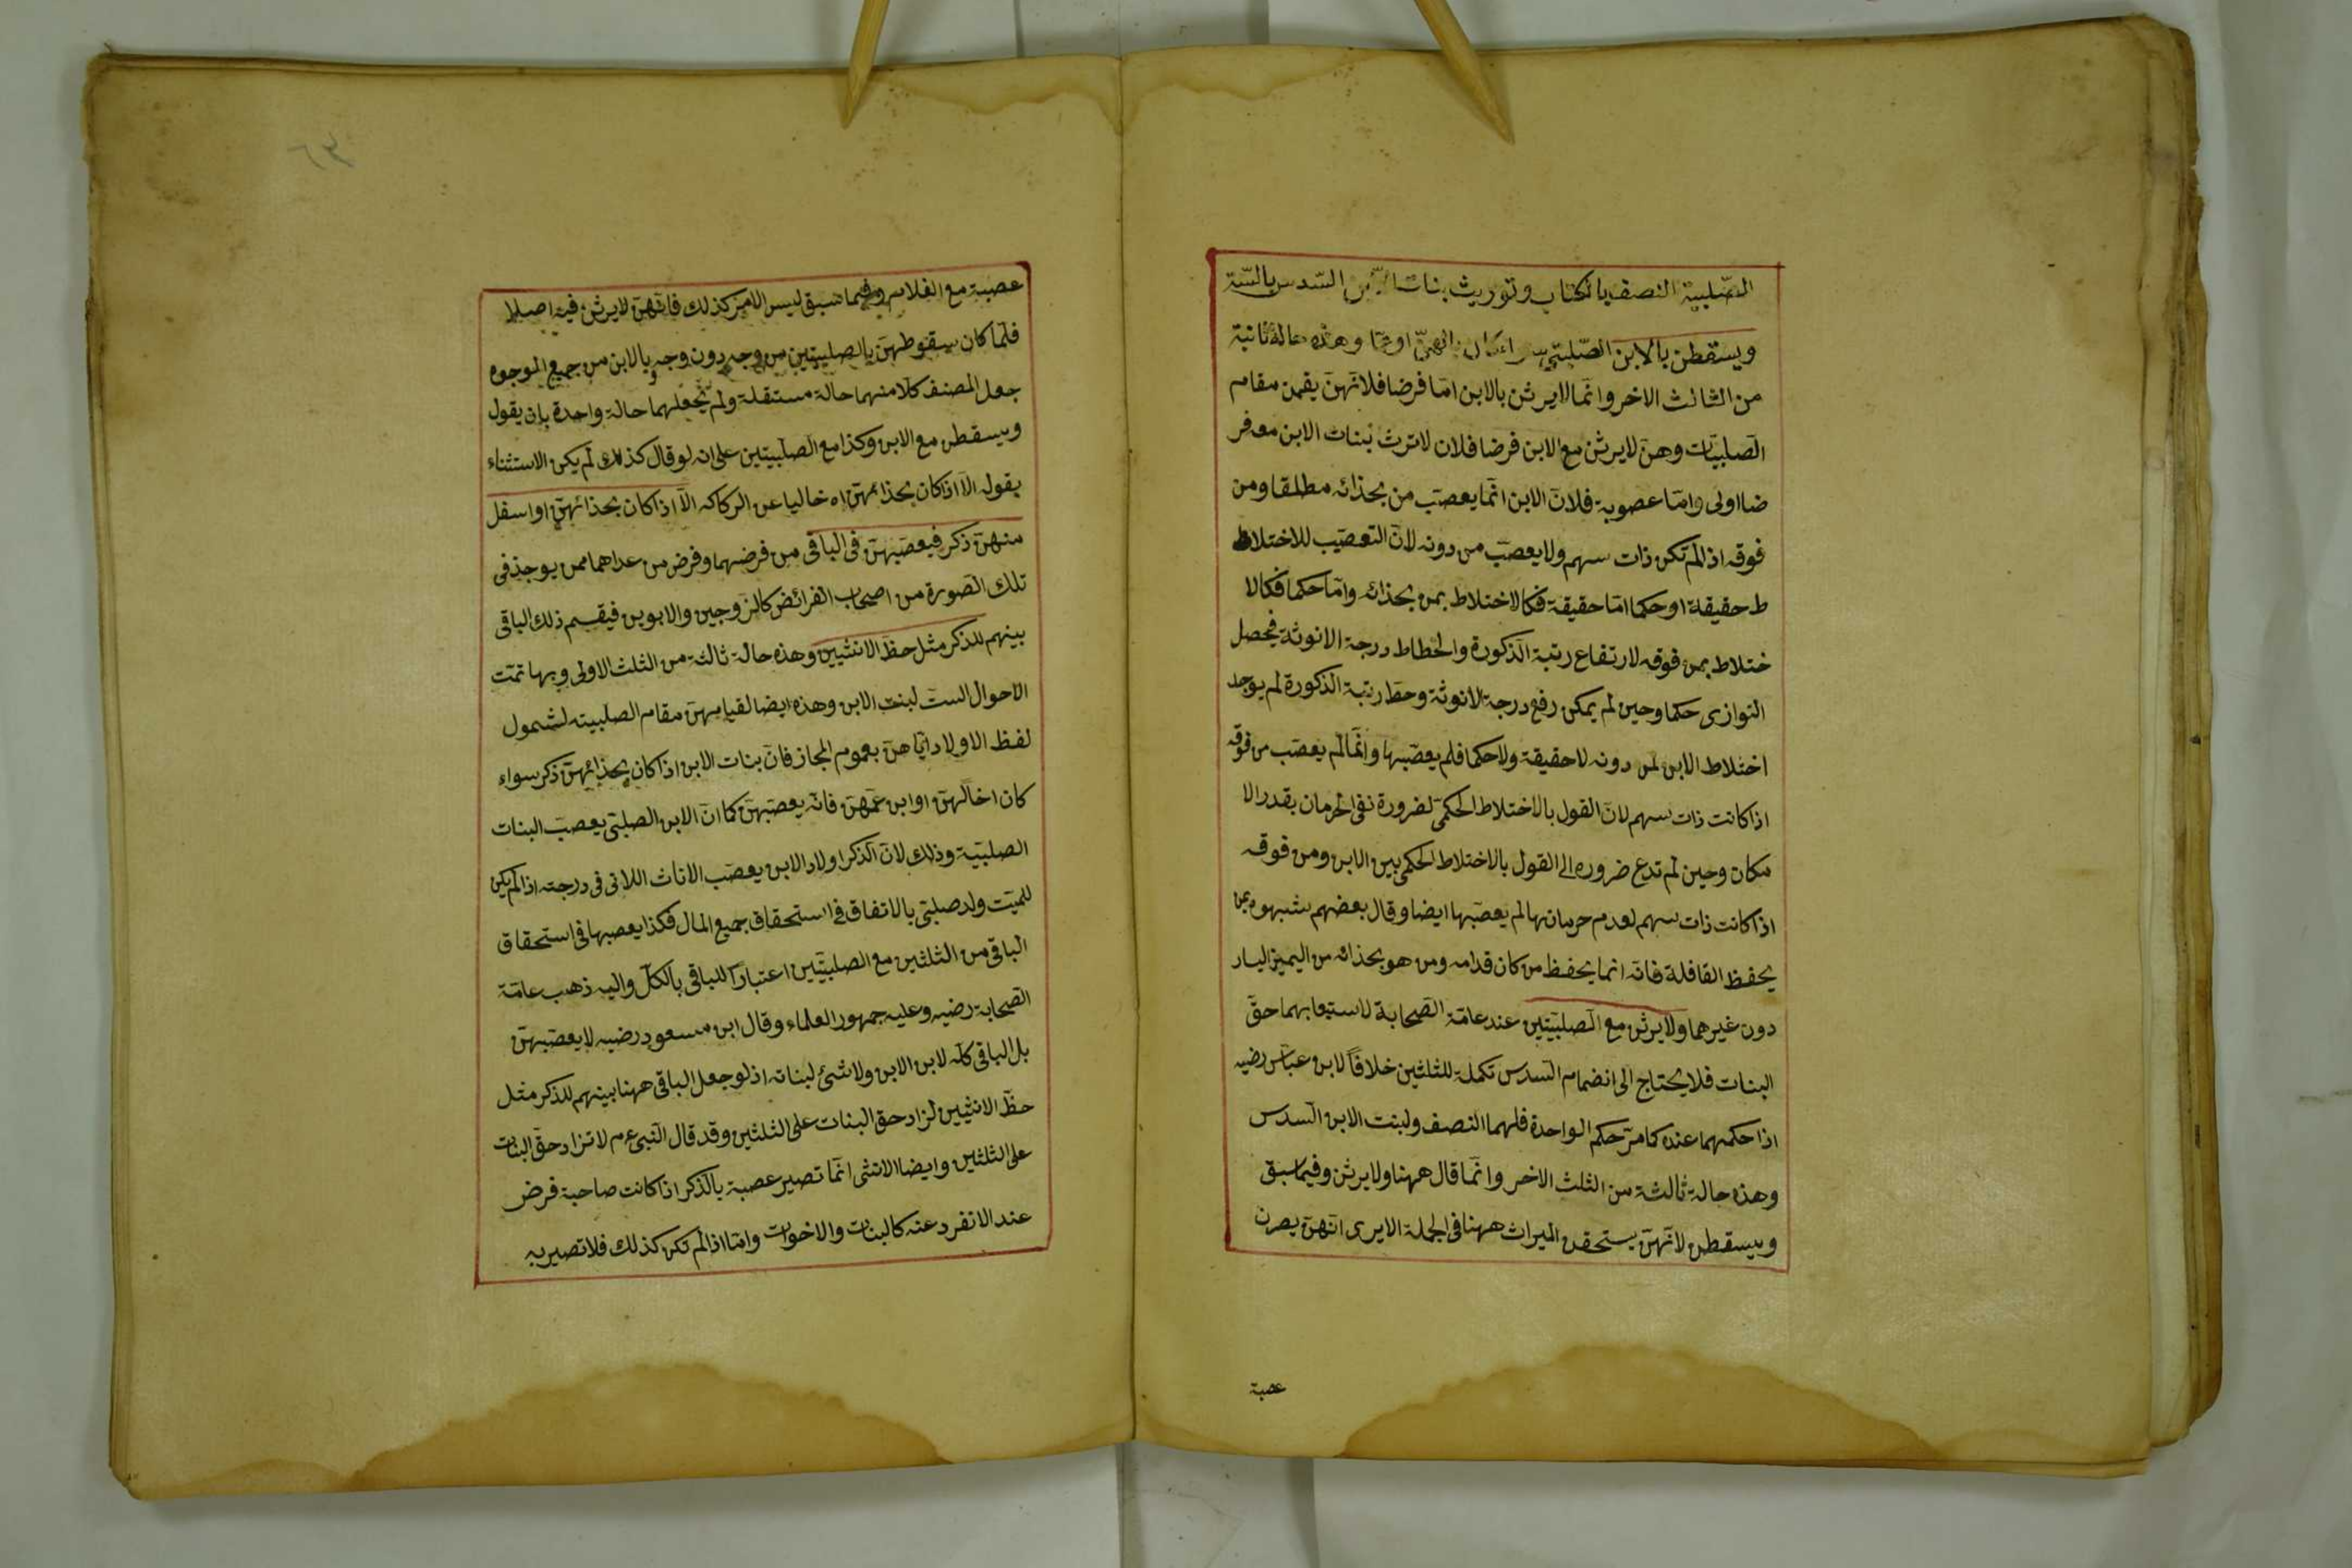 الصّلبية النصف بالكتاب وتوريث بنات الابن السّدس بالسنّة
ويسقطن بالابن الصّلبىّ وهذه حالة ثانية
من الثالث الاخر وانّما لا يرثن بالابن امّا فرضا فلانّهنّ يقمن مقام
الصّلبيّات وهنّ لا يرثن مع الابن فرضا فلان لا ترث بنات الابن معه فر
ضا اولى وامّا عصوبة فلانّ الابن انّما يعصّب من بحذائه مطلقا ومن
فوقه اذا لم تكن ذات سهم ولا يعصّب من دونه لانّ التعصيب للاختلاط
ط حقيقة او حكما امّا حقيقة فكالاختلاط بمن بحذائه وامّا حكما فكالا
ختلاط بمن فوقه لارتفاع رتبة الذكورة وانحطاط درجة الانوثة فيحصل
التوازى حكما وحين لم يمكن رفع درجة الانوثة وحط رتبة الذكورة لم يوجد
اختلاط الابن لمن دونه لا حقيقة ولا حكما فلم يعصّبها وانّما لم يعصّب من فوقه
اذا كانت ذات سهم لانّ القول بالاختلاط الحكمىّ لضرورة نفى الحرمان بقدر الا
مكان وحين لم تدع ضروره الى القول بالاختلاط الحكمى بين الابن ومن فوقه
اذا كانت ذات سهم لعدم حرمانها لم يعصّبها ايضا وقال بعضهم شبهوه بمن
يحفظ القافلة فانّه انما يحفظ من كان قدامه ومن هو بحذائه من اليمين اليسار
دون غيرهما ولا يرثن مع الصّلبيّتين عند عامّة الصّحابة لاستيعابهما حقّ
البنات فلا يحتاج الى انضمام السّدس تكملة للثلثين خلافاً لابن عبّاس رضيه
اذا حكمهما عنده كما مرّ حكم الواحدة فلهما النصف ولبنت الابن السّدس
وهذه حالة ثالثة من الثلث الاخر وانّما قال ههنا ولا يرثن وفيما سبق
ويسقطن لانّهنّ يستحقن الميراث ههنا فى الجملة الا يرى انّهنّ يصرن
عصبة
عصبة مع الغلام وفيما سبق ليس الامر كذلك فانّهنّ لا يرثن فيه اصلا
فلمّا كان سقوطهنّ بالصلبيتين من وجه دون وجه وبالابن من جميع الوجوه
جعل المصنف كلا منهما حالة مستقلة ولم يجعلهما حالة واحدة بان يقول
ويسقطن مع الابن وكذا مع الصّلبيّتين على انه لو قال كذلك لم يكن الاستثناء
بقوله الّا اذا كان بحذائهنّ اه خاليا عن الركاكه الّا اذا كان بحذائهنّ او اسفل
منهنّ ذكر فيعصّبهنّ فى الباقى من فرضهما وفرض من عداهما ممن يوجد فى
تلك الصّورة من اصحاب الفرائض كالزوجين والابوين فيقسم ذلك الباقى
بينهم للذكر مثل حظّ الانثيين وهذه حالة ثالثة من الثلث الاولى وبها تمّت
الاحوال الستّ لبنت الابن وهذه ايضا لقيامهنّ مقام الصلبيته لشمول
لفظ الاولاد ايّاهنّ بعموم المجاز فانّ بنات الابن اذا كان بحذائهنّ ذكر سواء
كان اخا لهنّ او ابن عمّهنّ فانّه يعصّبهنّ كما انّ الابن الصلبىّ يعصّب البنات
الصلبيّة وذلك لانّ الذكر اولاد الابن يعصّب الاناث اللاتى فى درجته اذا لم يكن
للميّت ولد صلبىّ بالاتفاق فى استحقاق جميع المال فكذا يعصبها فى استحقاق
الباقى من الثلثين مع الصلبيّتين اعتباراً للباقى بالكلّ واليه ذهب عامّة
الصّحابة رضيه وعليه جمهور العلماء وقال ابن مسعود رضيه لا يعصّبهنّ
بل الباقى كلّه لابن الابن ولا شئ لبناته اذ لو جعل الباقى ههنا بينهم للذكر مثل
حظّ الانثيين لزاد حق البنات على الثلثين وقد قال النّبى عم لا تزاد حقّ البنات
على الثلثين وايضا الانثى انّما تصير عصبة بالذّكر اذا كانت صاحبة فرض
عند الانفرد عنه كالبنات والاخوات وامّا اذا لم تكن كذلك فلا تصير به